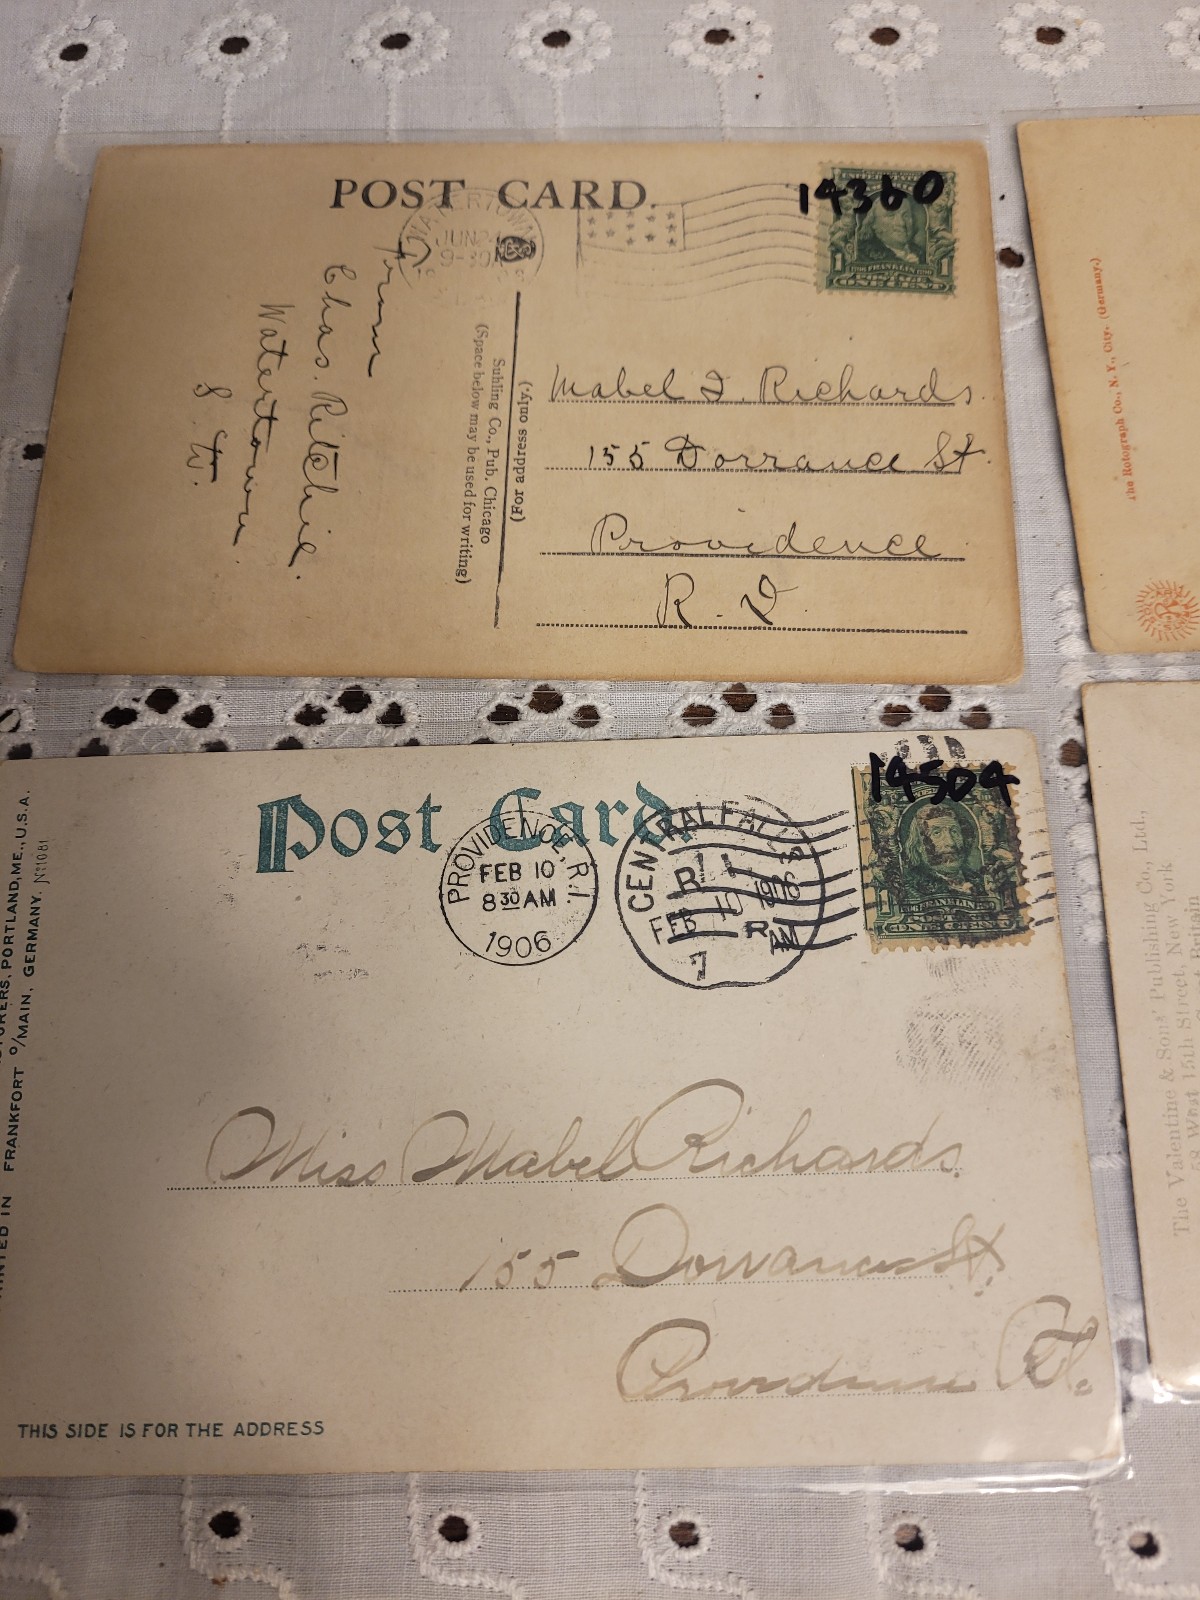 POST CARD.
14360
WATERTOWN
JUN 24
1 FRANKLIN 1
POSTAGE
ONE CENT
From
Chas. Ritchie.
Watertown
S. W.
Suhling Co., Pub. Chicago
(Space below may be used for writing)
(For address only.)
Mabel I. Richards
155 Dorrance St.
Providence
R. I.
Post Card
14504
PROVIDENCE, R.I.
FEB 10
8 30 AM
1906
CENTRAL FALLS
R I
FEB 10 1906
7 AM
R
1 FRANKLIN 1
ONE CENT
PORTLAND, ME., U.S.A.
PRINTED IN FRANKFORT o/MAIN, GERMANY. No 1081
Miss Mabel Richards.
155 Dorrance St.
Providence R.I.
THIS SIDE IS FOR THE ADDRESS
The Rotograph Co., N. Y., City. (Germany.)
The Valentine & Sons' Publishing Co., Ltd.,
West 15th Street, New York
Britain